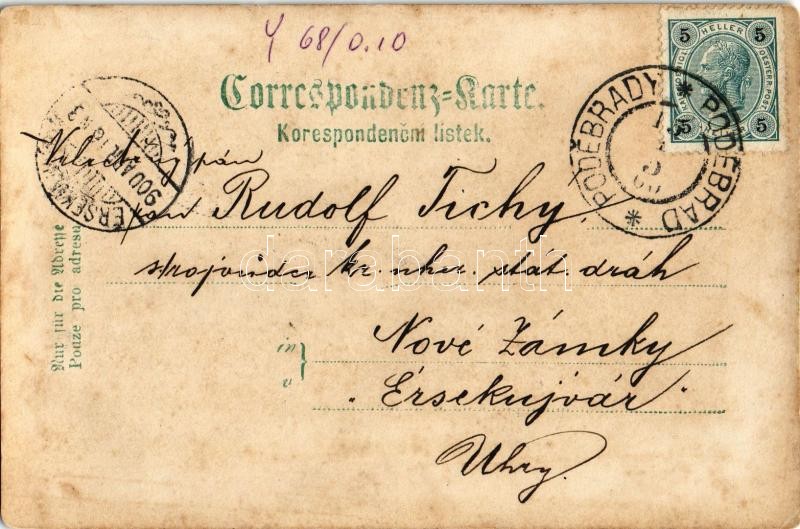 Y 68/0.10
5 HELLER 5
5 5
Correspondenz-Karte.
Korespondenční lístek.
PODĚBRADY * PODĚBRAD *
ÉRSEKUJVÁR
900
Velectěný pán
pan Rudolf Tichý,
strojvůdce kr. uher. stát. dráh
in
v
Nové Zámky
"Érsekujvár"
Uhry.
Nur für die Adresse
Pouze pro adresu
darabanth